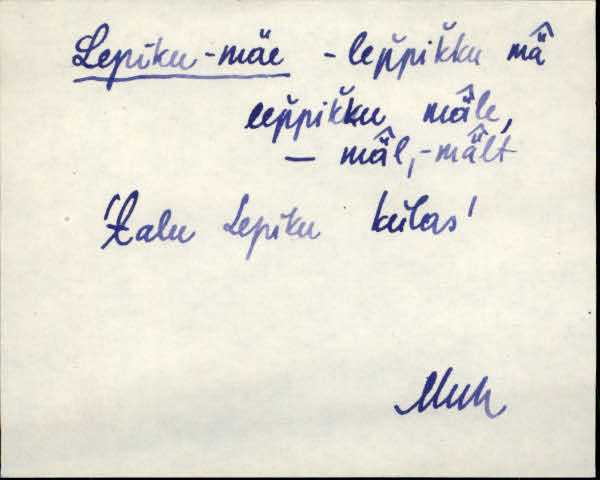 Lepiku-mäe - lep̌pik̆ku mä̂
lep̌pik̆ku mä̂le,
— mä̂l, -mä̂lt
'Talu Lepiku külas'
Muh